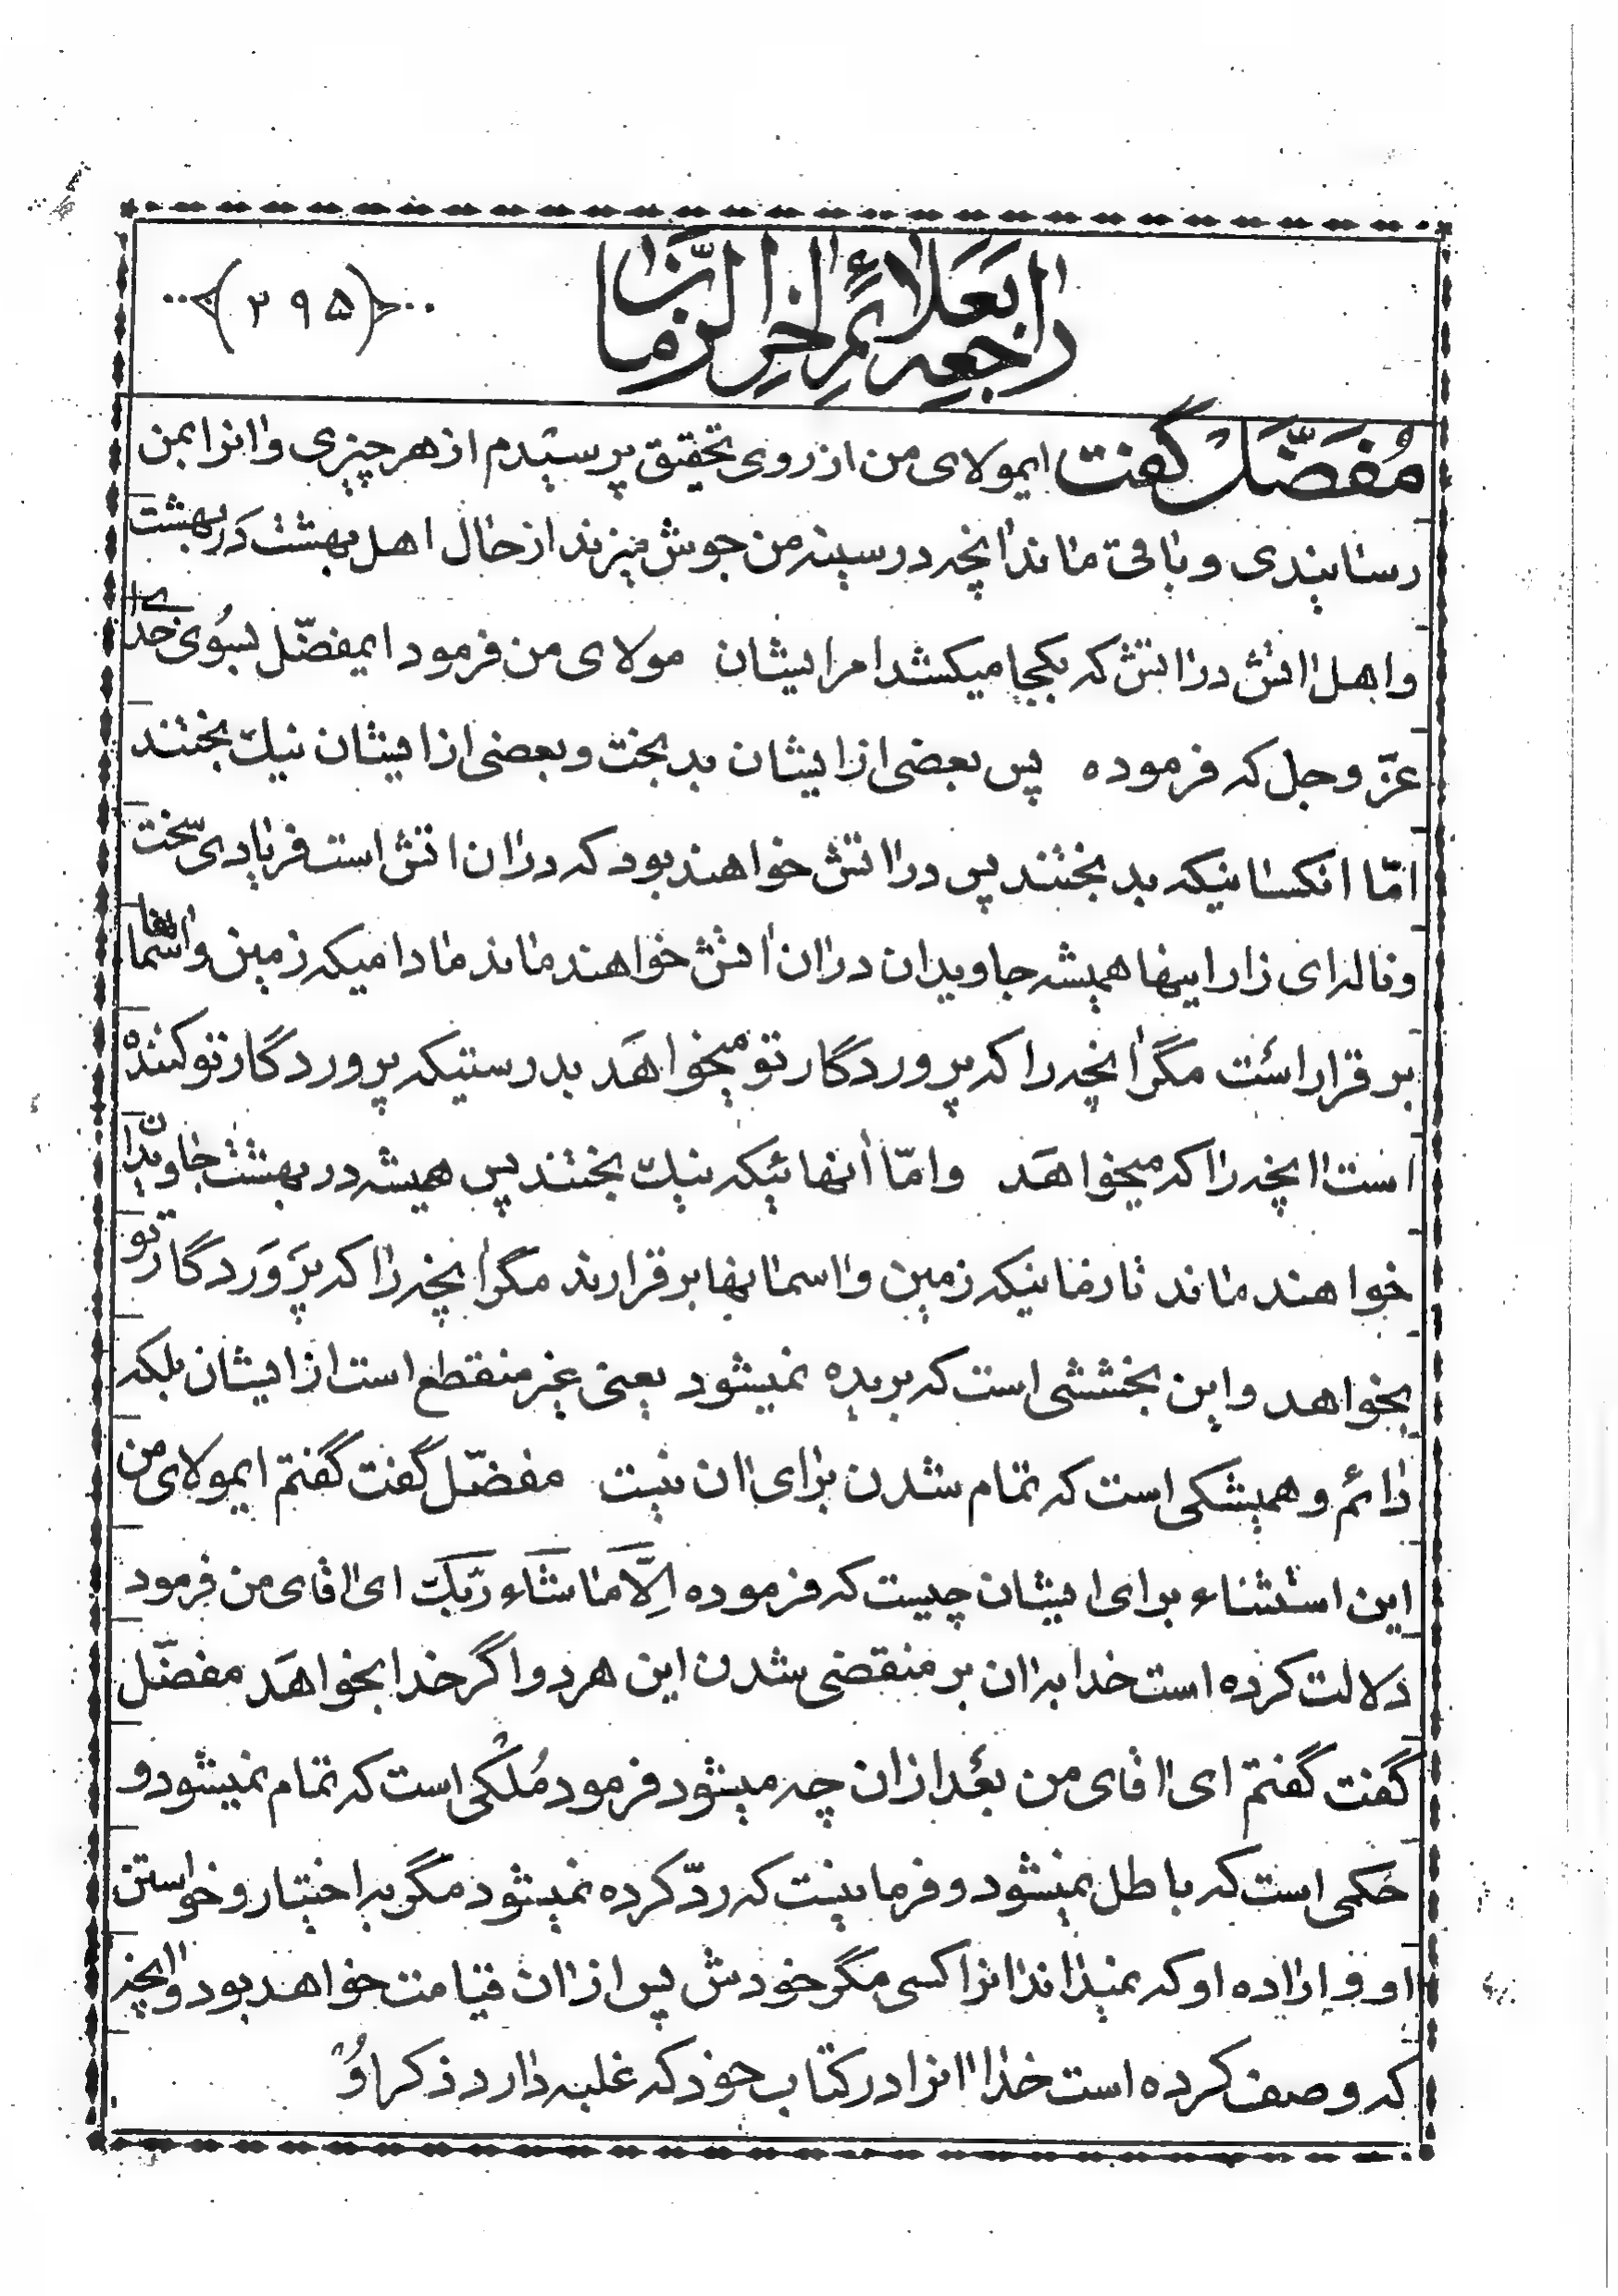 راجعه بعلائم آخر الزمان
(۲۹۵)
مُفَضَّل گفت ایمولای من از روی تحقیق پرسیدم از هر چیزی و آنرا بمن
رسانیدی و باقی ماند آنچه در سینه من جوش میزند از حال اهل بهشت در بهشت
و اهل آتش در آتش که بکجا میکشد امر ایشان مولای من فرمود ایمفضّل بسُوی خدای
عزّ و جل که فرموده پس بعضی از ایشان بدبخت و بعضی از ایشان نیک بختند
امّا آنکسانیکه بدبختند پس در آتش خواهند بود که در آن آتش است فریادی سخت
و ناله ای زار اینها همیشه جاویدان در آن آتش خواهند ماند مادامیکه زمین و آسمانها
بر قرار است مگر آنچه را که پروردگار تو میخواهَد بدرستیکه پروردگار تو کننده
است آنچه را که میخواهَد و امّا آنهائیکه نیک بختند پس همیشه در بهشت جاویدان
خواهند ماند تا زمانیکه زمین و آسمانها برقرارند مگر آنچه را که پرَوَردگار تو
بخواهد و این بخششی است که بریده نمیشود یعنی غیر منقطع است از ایشان بلکه
دائم و همیشکی است که تمام شدن برای آن نیست مفضّل گفت گفتم ایمولای من
این استثناء برای ایشان چیست که فرموده اِلَّا مٰا شَٰاءَ رَبُّکَ ای آقای من فرمود
دلالت کرده است خدا به آن بر منقضی شدن این هر دو اگر خدا بخواهَد مفضّل
گفت گفتم ای آقای من بعَد از آن چه میشود فرمود مُلکی است که تمام نمیشود و
حَکمی است که باطل نمیشود و فرمانیست که ردّ کرده نمیشود مگر به اختیار و خواستن
او و اِراده او که نمیداند آنرا کسی مگر خودش پس از آن قیامت خواهد بود و آنچه
که وصف کرده است خدا آنرا در کتاب خود که غلبه دارد ذکر اوُ